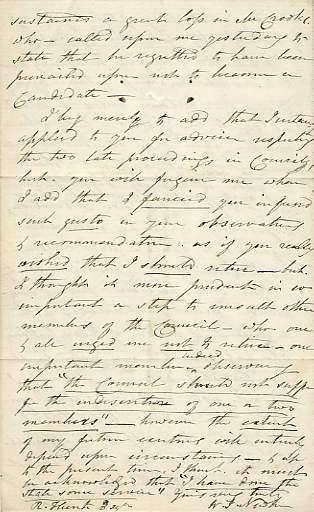 sustains a great loss in Mr Crooks.
who called upon me yesterday to
state that he regretted to have been
prevailed upon not to become a
Candidate —
I beg merely to add that I
applied to you for advice respecting
the two late proceedings in Council,
but you will forgive me when
I add that I fancied you infused
such gusto in your observations
& recommendation as if you really
wished that I should retire — but
I thought it more prudent in so
important a step to consult other
members of the Council — who one
& all urged me not to retire — one
important member indeed observing
that "the Council should not suffer
for the indiscretions of one or two
members" — however the extent
of my future continu will entirely
depend upon circumstances — & up
to the present time, I think it must
be acknowledged that "I have done the
State some service" Yours very truly